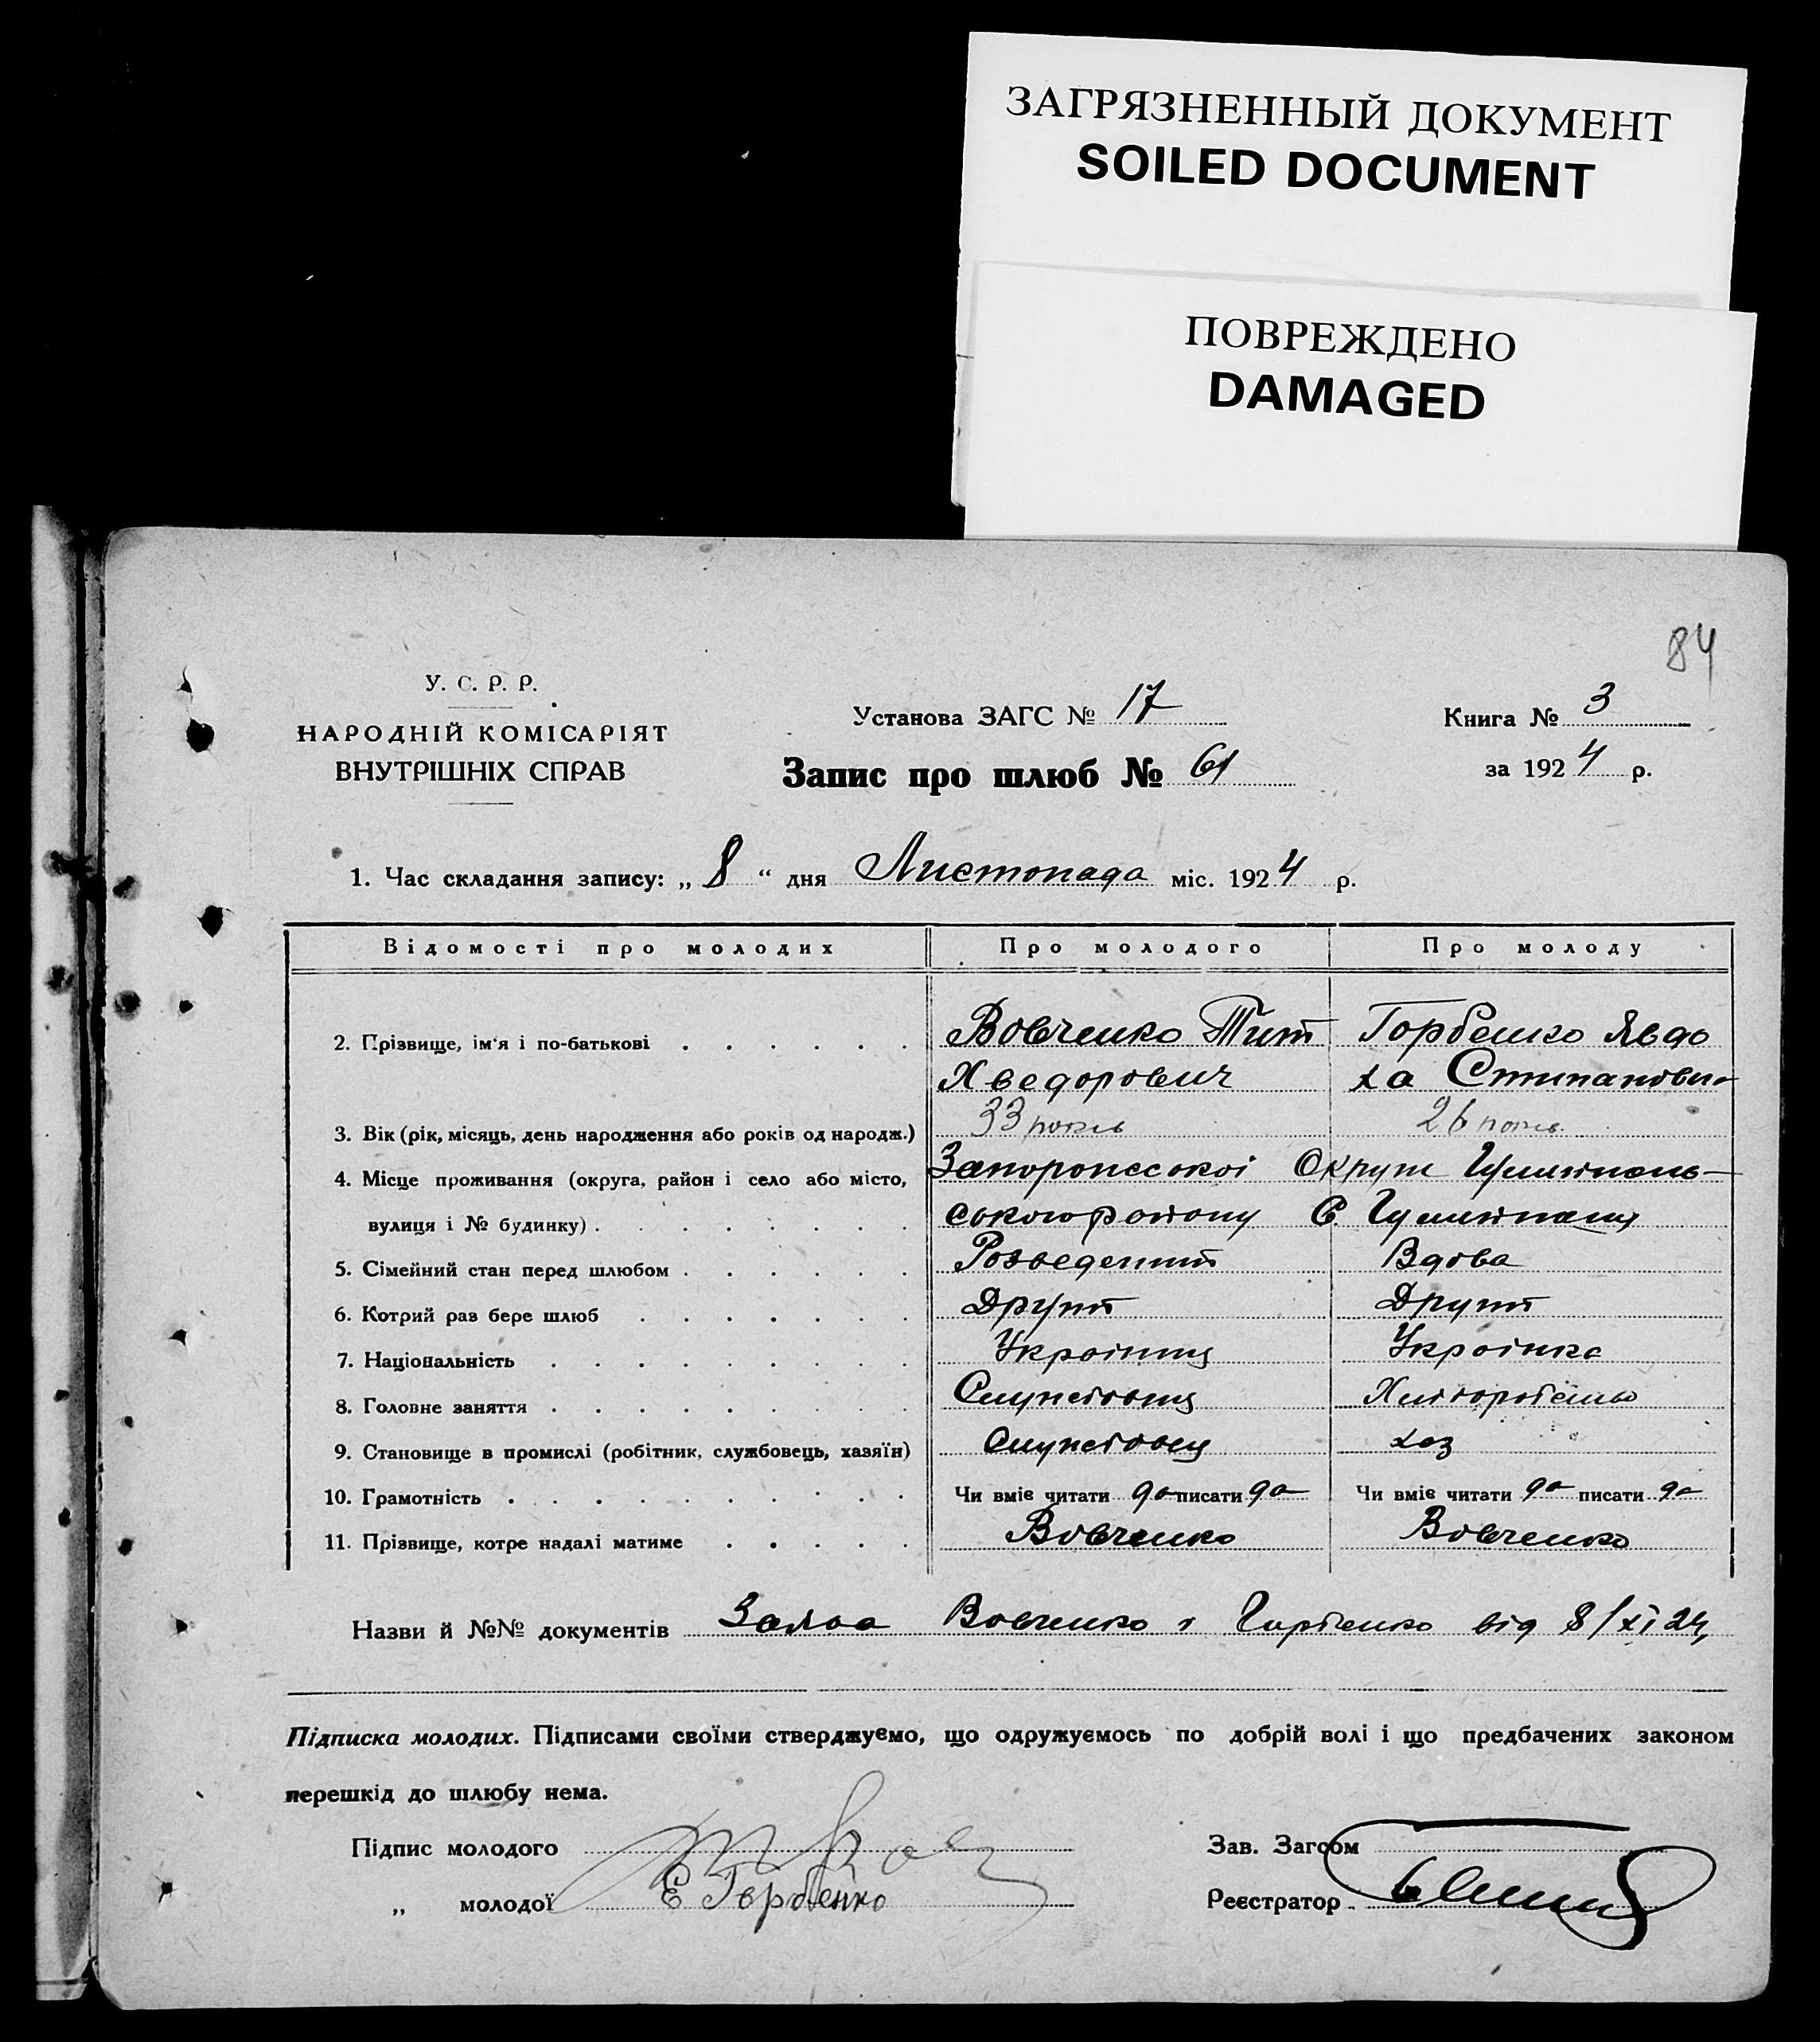 ЗАГРЯЗНЕННЫЙ ДОКУМЕНТ
SOILED DOCUMENT
ПОВРЕЖДЕНО
DAMAGED
84
У. С. Р. Р.
НАРОДНІЙ КОМІСАРІЯТ
ВНУТРІШНІХ СПРАВ
Установа ЗАГС № 17
Книга № 3
Запис про шлюб № 61
за 1924 р.
1. Час складання запису: „ 8 “ дня Листопада міс. 1924 р.
Відомості про молодих Про молодого Про молоду
2. Прізвище, ім'я і по-батькові Вовченко Тит Горбенко Явдо
Хведорович ха Стипановн
3. Вік (рік, місяць, день народження або років од народж.) 33 років 26 років
4. Місце проживання (округа, район і село або місто, Запоропсокоі Округи Гуляйполь-
вулиця і № будинку) ського району С. Гуляйполя
5. Сімейний стан перед шлюбом Розведений Вдова
6. Котрий раз бере шлюб Другий Другий
7. Національність Українець Українка
8. Головне заняття Службовець Хліборобство
9. Становище в промислі (робітник, службовець, хазяїн) Службовець хаз
10. Грамотність Чи вміє читати да писати да Чи вміє читати да писати да
11. Прізвище, котре надалі матиме Вовченко Вовченко
Назви й №№ документів Заява Вовченко і Горбенко від 8/XI 24,
Підписка молодих. Підписами своїми стверджуємо, що одружуємось по добрій волі і що предбачених законом
перешкід до шлюбу нема.
Підпис молодого
Зав. Загсом
„ молодої Е Горбенко
Реєстратор